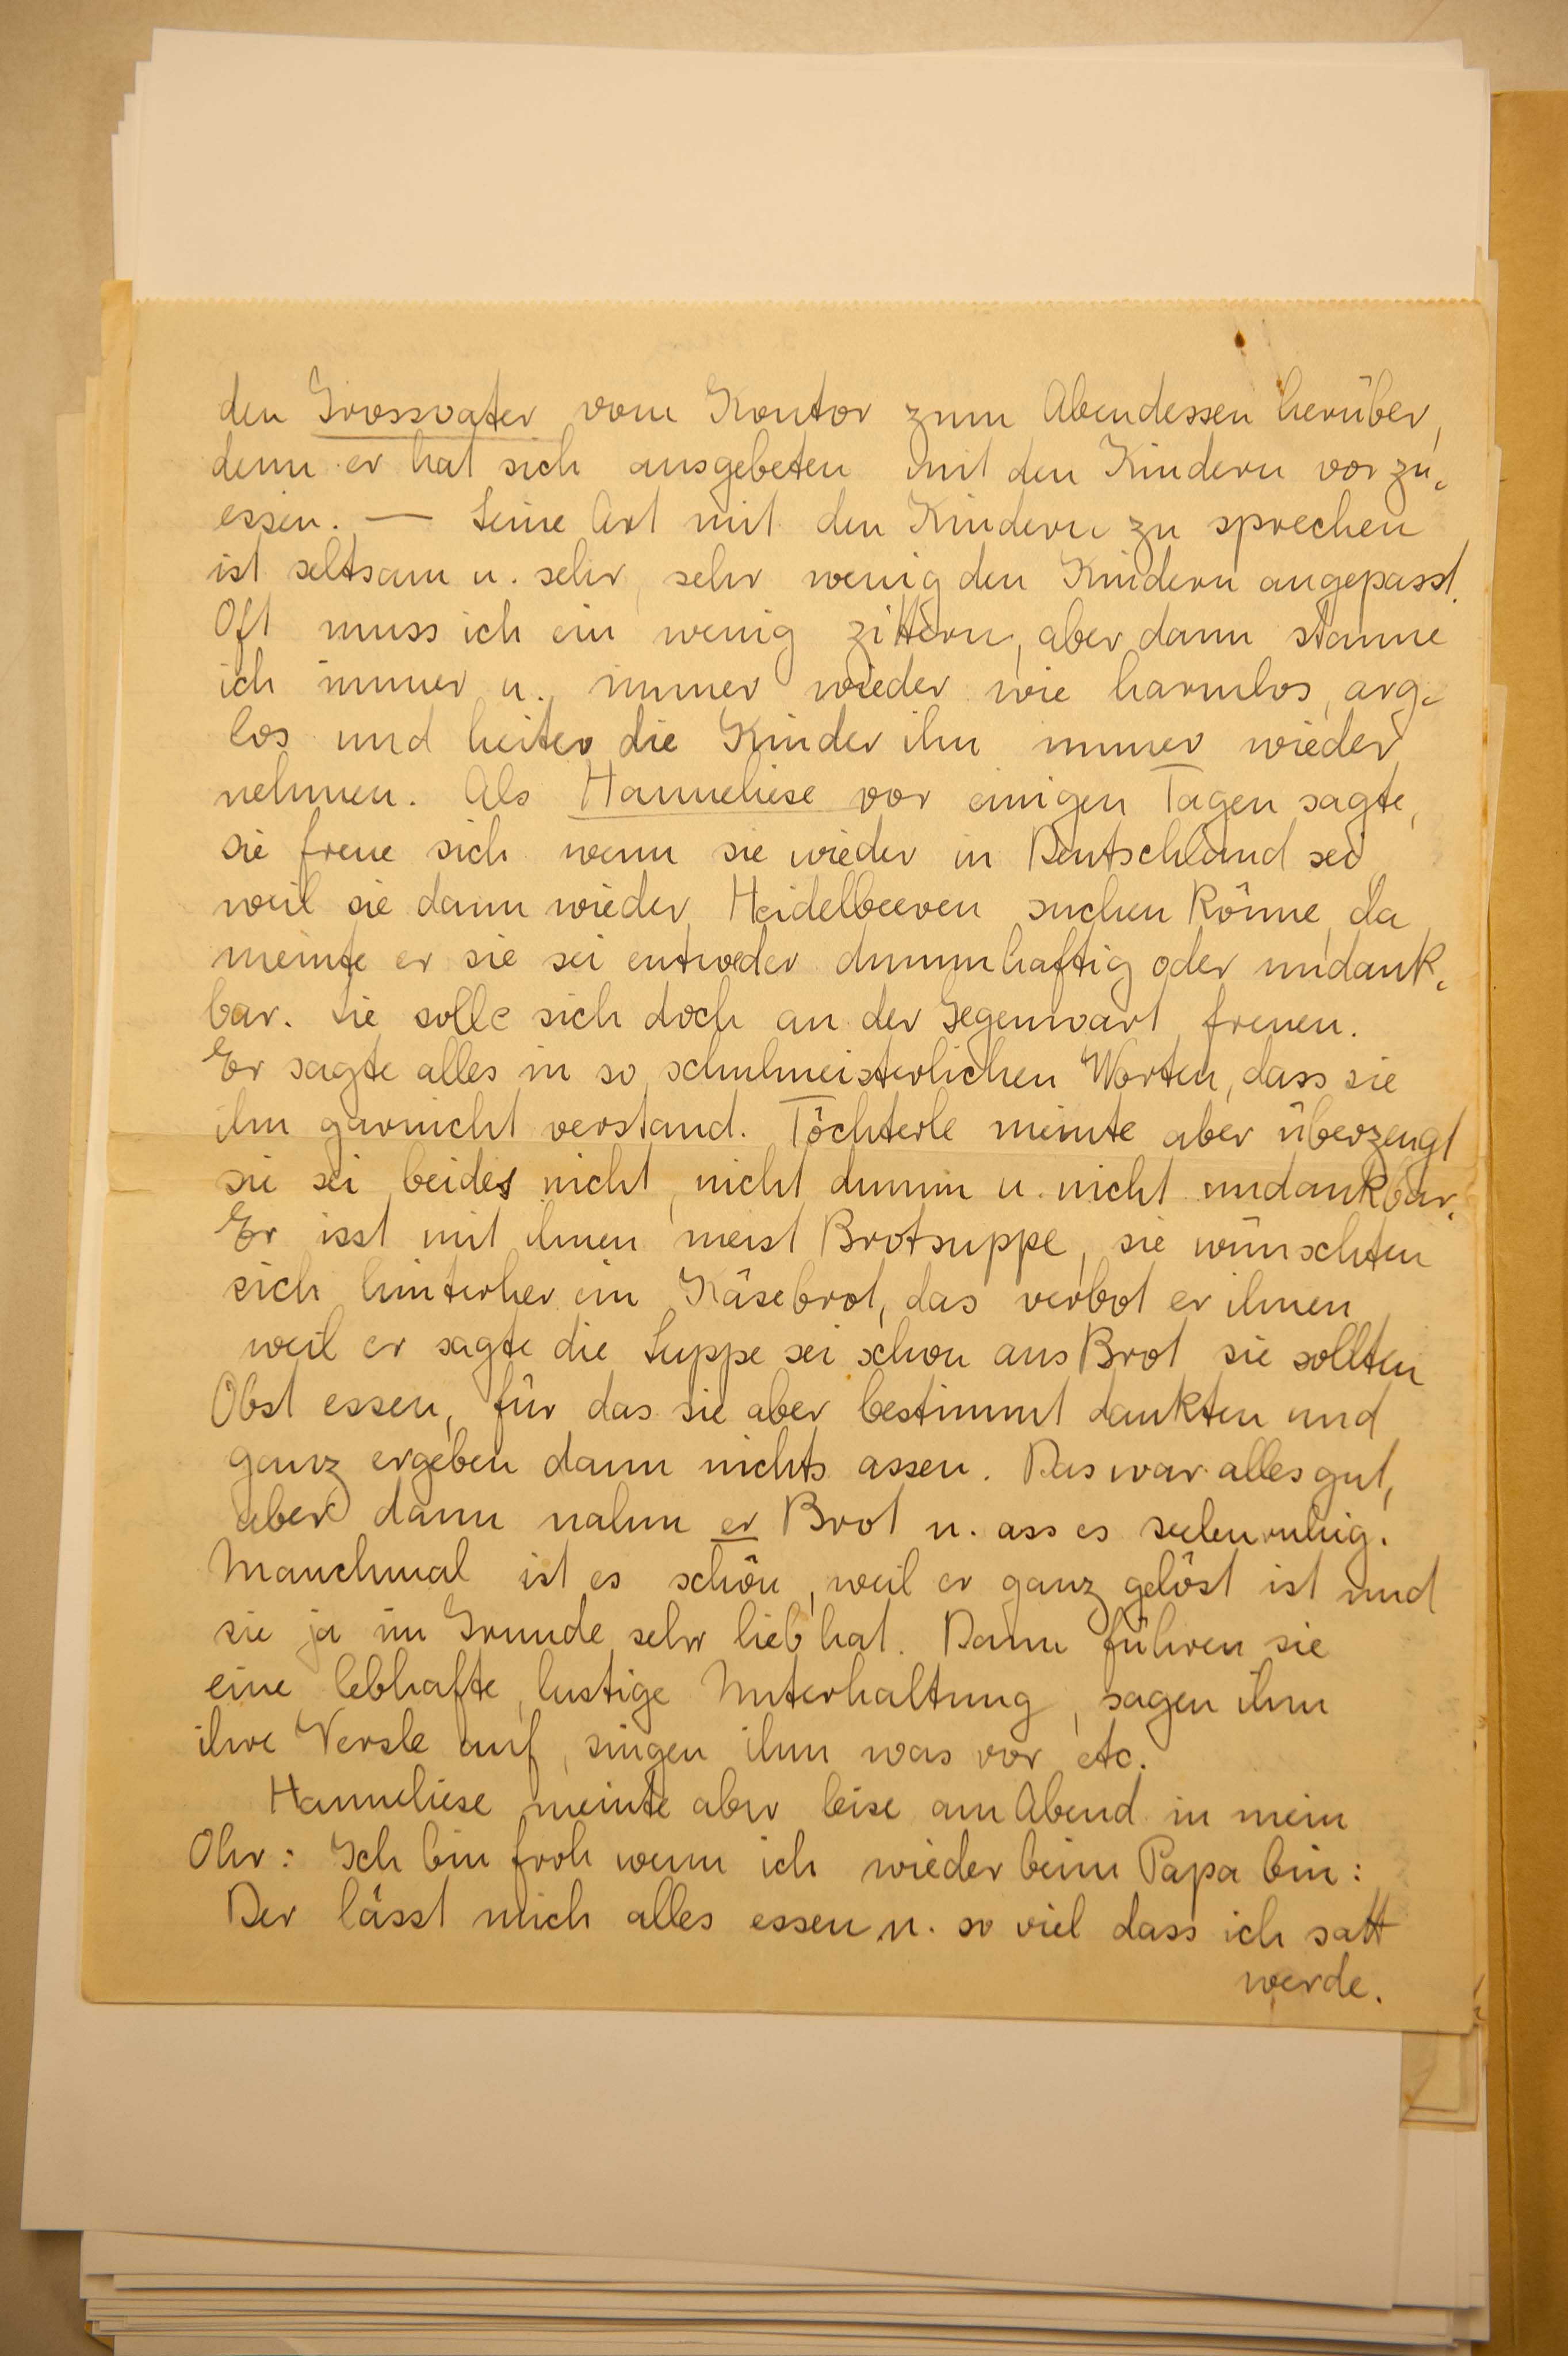 den Grossvater vom Kontor zum Abendessen herüber,
denn er hat sich ausgebeten mit den Kindern vorzu-
essen. — Seine Art mit den Kindern zu sprechen
ist seltsam u. sehr, sehr wenig den Kindern angepasst.
Oft muss ich ein wenig zittern, aber dann staune
ich immer u. immer wieder wie harmlos, arg-
los und heiter die Kinder ihn immer wieder
nehmen. Als Hanneliese vor einigen Tagen sagte,
sie freue sich wenn sie wieder in Deutschland sei,
weil sie dann wieder Heidelbeeren suchen könne, da
meinte er sie sei entweder dummhaftig oder undank-
bar. Sie solle sich doch an der Gegenwart freuen.
Er sagte alles in so schulmeisterlichen Worten, dass sie
ihn garnicht verstand. Töchterle meinte aber überzeugt
sie sei beides nicht, nicht dumm u. nicht undankbar.
Er isst mit ihnen meist Brotsuppe, sie wünschten
sich hinterher ein Käsebrot, das verbot er ihnen
weil er sagte die Suppe sei schon aus Brot sie sollten
Obst essen, für das sie aber bestimmt dankten und
ganz ergeben dann nichts assen. Das war alles gut,
aber dann nahm er Brot u. ass es seelenruhig.
Manchmal ist es schön, weil er ganz gelöst ist und
sie ja im Grunde sehr lieb hat. Dann führen sie
eine lebhafte, lustige Unterhaltung, sagen ihm
ihre Versle auf, singen ihm was vor etc.
Hanneliese meinte aber leise am Abend in mein
Ohr: Ich bin froh wenn ich wieder beim Papa bin:
Der lässt mich alles essen u. so viel dass ich satt
werde.